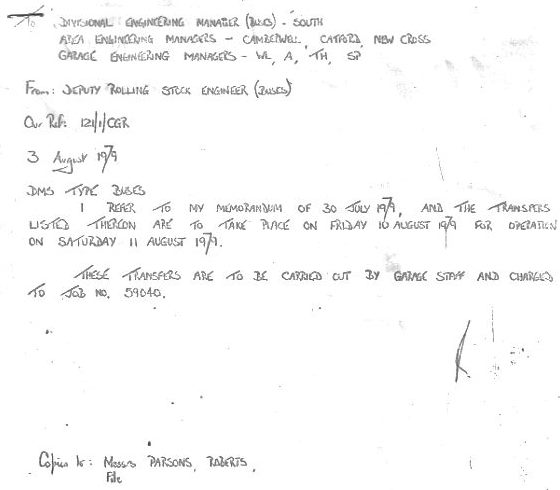 To DIVISIONAL ENGINEERING MANAGER (BUSES) - SOUTH
AREA ENGINEERING MANAGERS - CAMBERWELL, CATFORD, NEW CROSS
GARAGE ENGINEERING MANAGERS - WL, A, TH, SP
From: DEPUTY ROLLING STOCK ENGINEER (BUSES)
Our Ref: 121/1/CGR
3 August 1979
DMS TYPE BUSES
I REFER TO MY MEMORANDUM OF 30 JULY 1979, AND THE TRANSFERS
LISTED THEREON ARE TO TAKE PLACE ON FRIDAY 10 AUGUST 1979 FOR OPERATION
ON SATURDAY 11 AUGUST 1979.
THESE TRANSFERS ARE TO BE CARRIED OUT BY GARAGE STAFF AND CHARGED
TO JOB NO. 59040.
Copies to: Messrs PARSONS, ROBERTS,
File